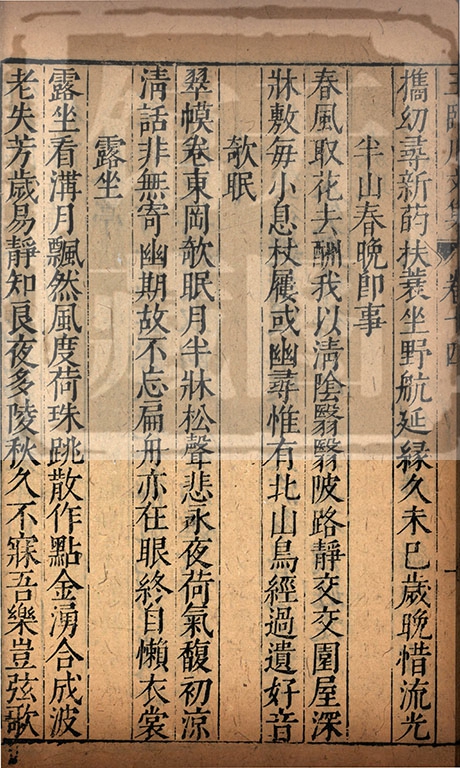 攜幼尋新菂扶蓑坐野航延緣久未已歲晚惜流光
半山春晚即事
春風取花去酬我以清陰翳翳陂路靜交交園屋深
牀敷每小息杖屨或幽尋惟有北山鳥經過遺好音
欹眠
翠幙卷東岡欹眠月半牀松聲悲永夜荷氣馥初涼
清話非無寄幽期故不忘扁舟亦在眼終自懶衣裳
露坐
露坐看溝月飄然風度荷珠跳散作點金湧合成波
老失芳歲易靜知良夜多陵秋久不寐吾樂豈弦歌